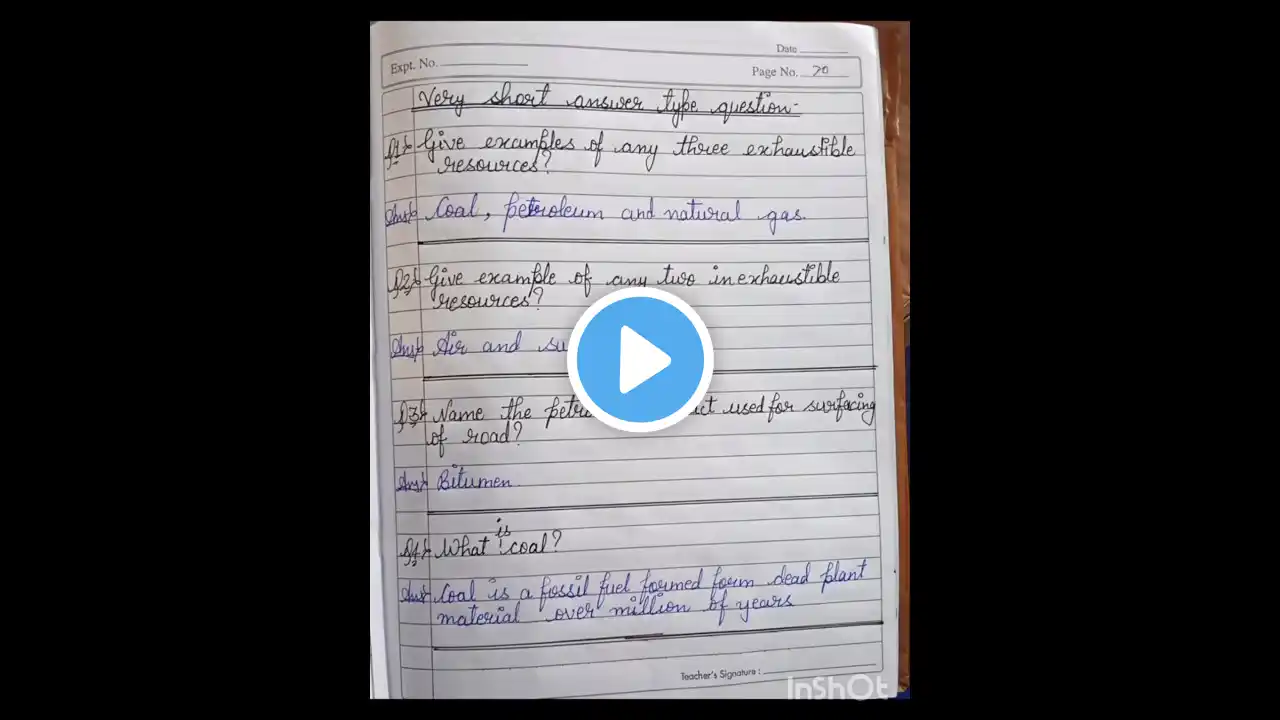 Date
Expt. No.
Page No. 70
Very short answer type question-
Q1> Give examples of any three exhaustible
resources?
Ans> Coal, petroleum and natural gas.
Q2> Give example of any two inexhaustible
resources?
Ans> Air and su
Q3> Name the petro uct used for surfacing
of road?
Ans> Bitumen.
is
Q4> What coal?
Ans> Coal is a fossil fuel formed form dead plant
material over million of years
Teacher's Signature :
InShOt